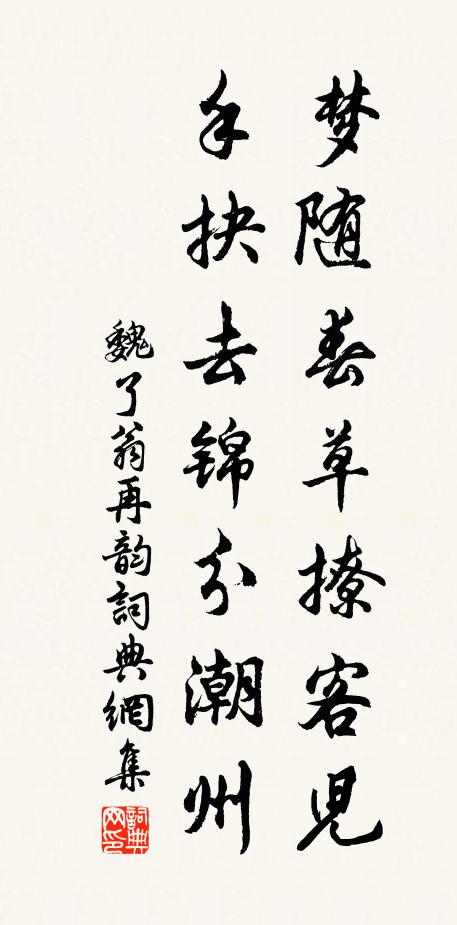 梦随春草撩客児
手抉去锦分潮州
魏了翁再韵詞典網集
詞典网印